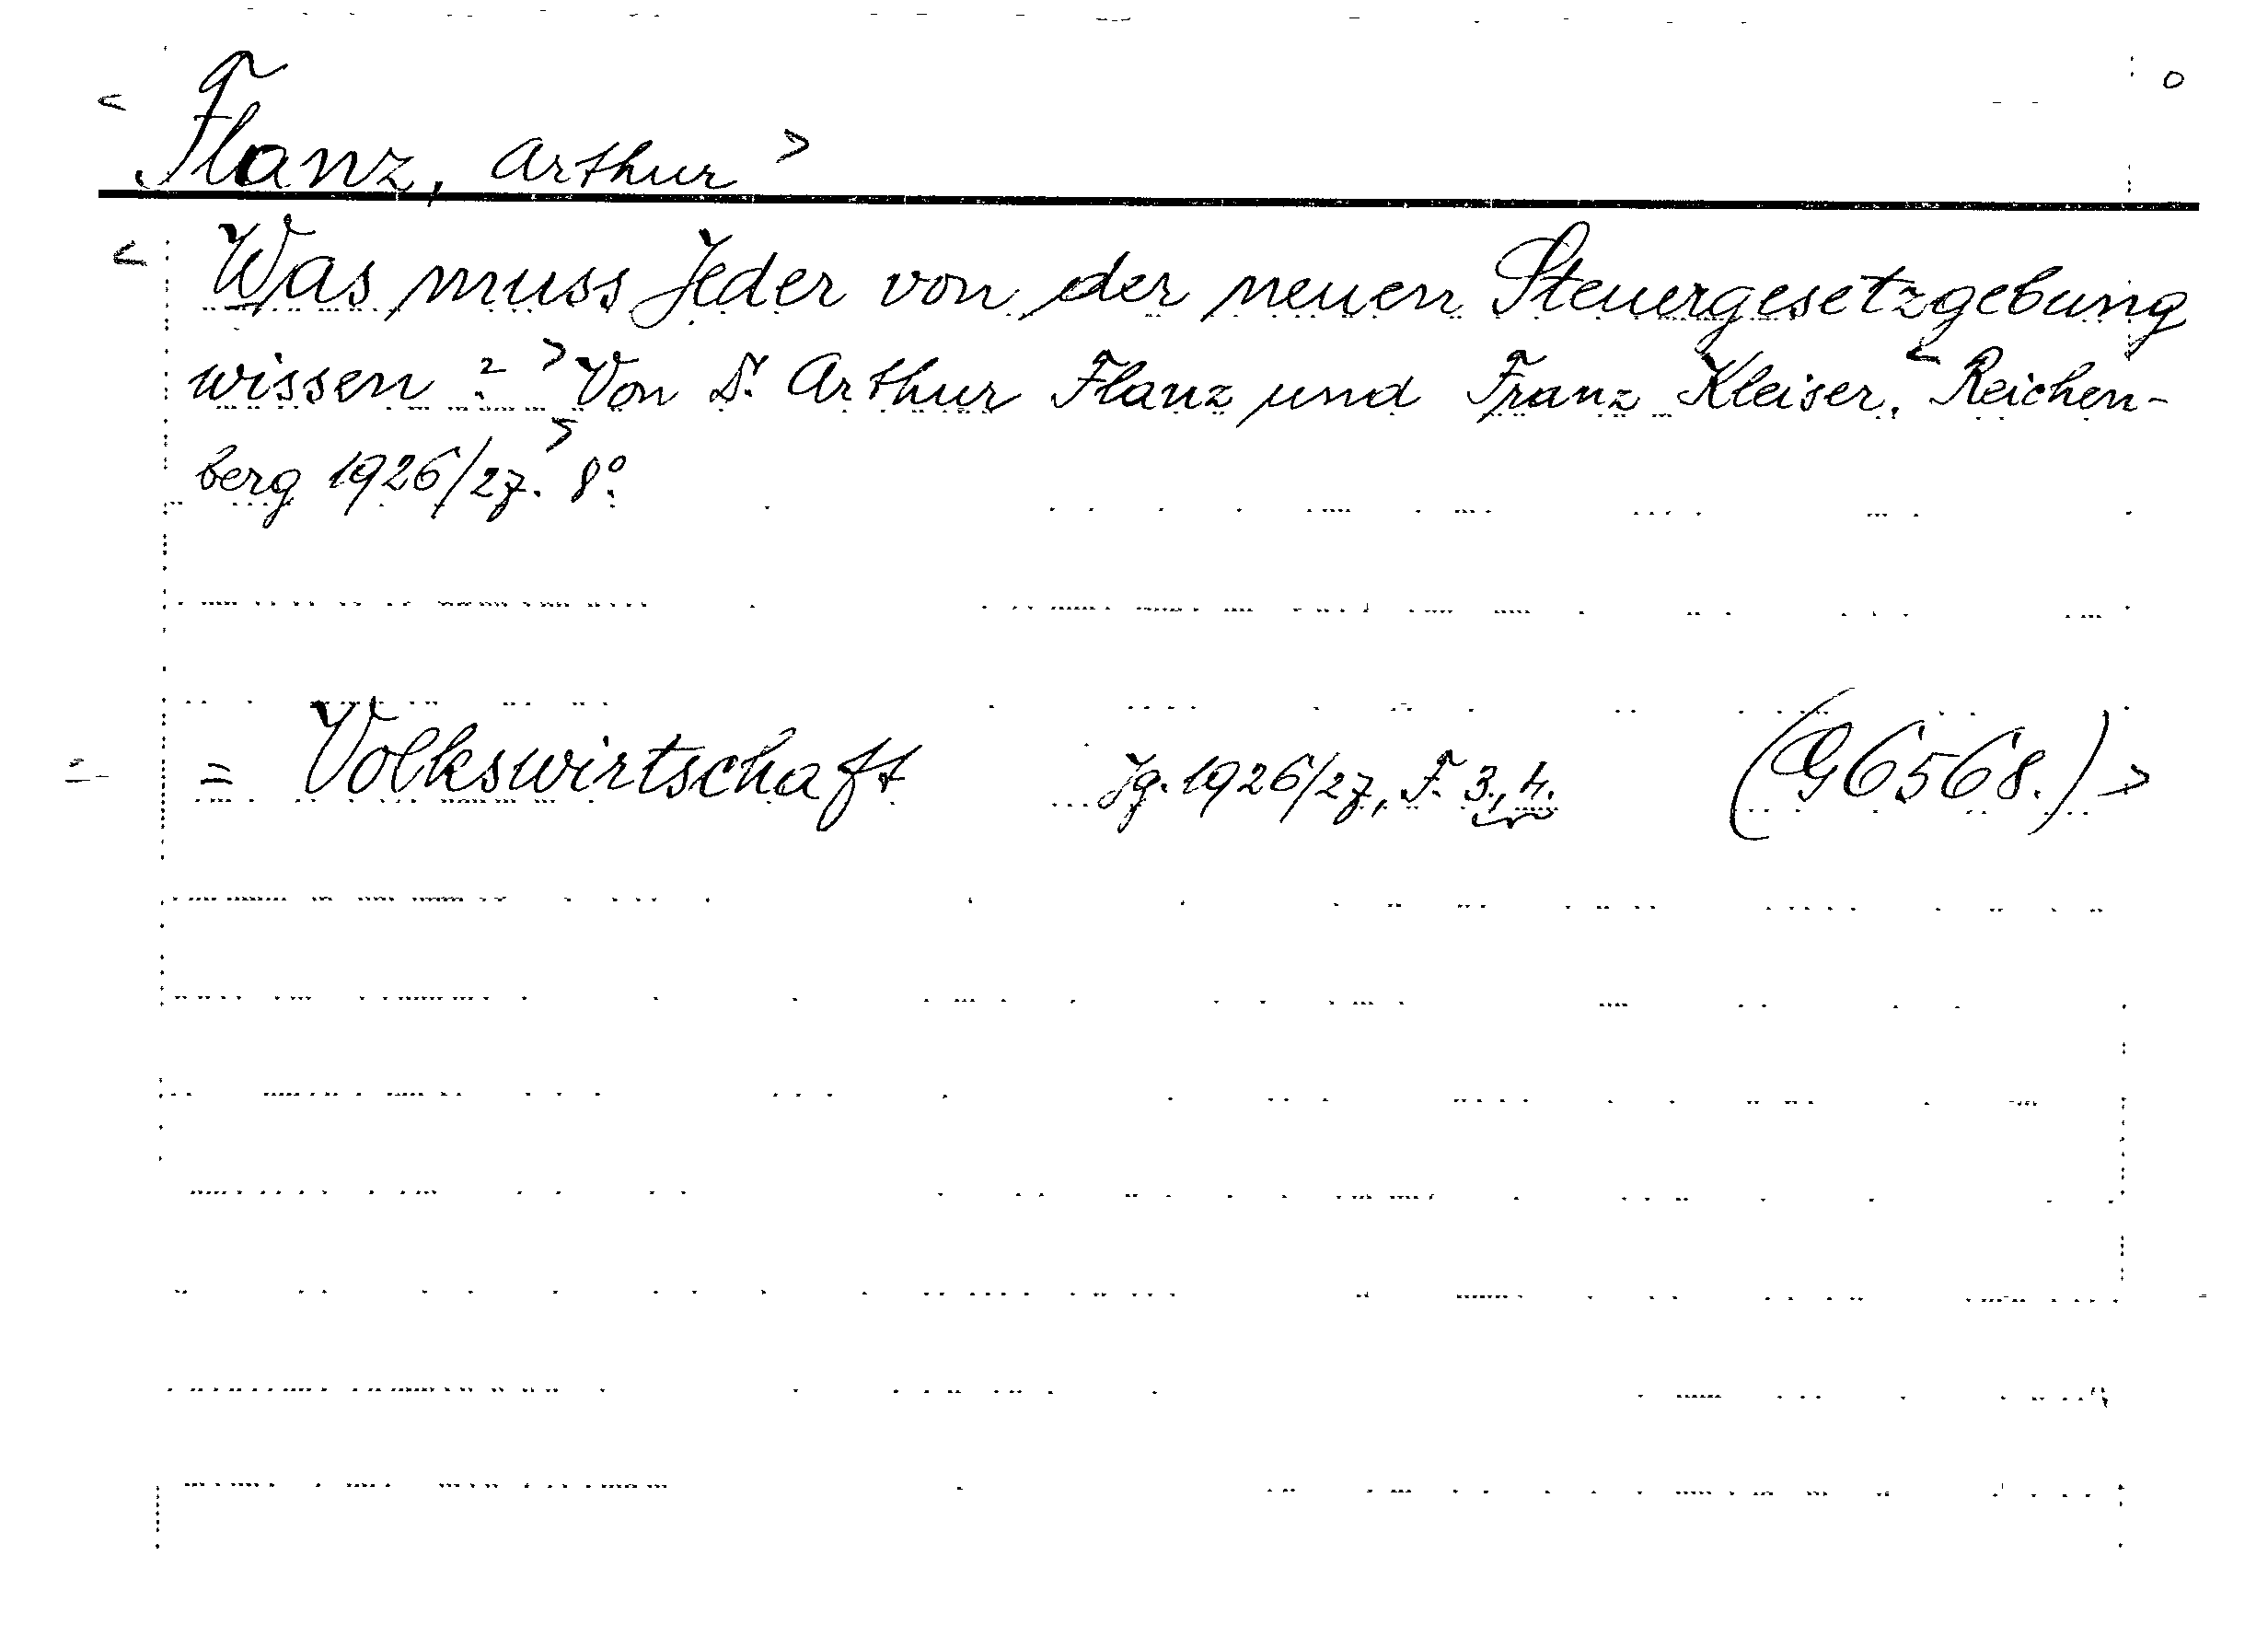 < Flanz, Arthur > o
< Was muss Jeder von der neuen Steuergesetzgebung
wissen ? > Von Dr. Arthur Flanz und Franz Kleiser. < Reichen-
berg 1926/27. > 8°.
= Volkswirtschaft Jg. 1926/27, F. 3., 4. (G 6568.) >